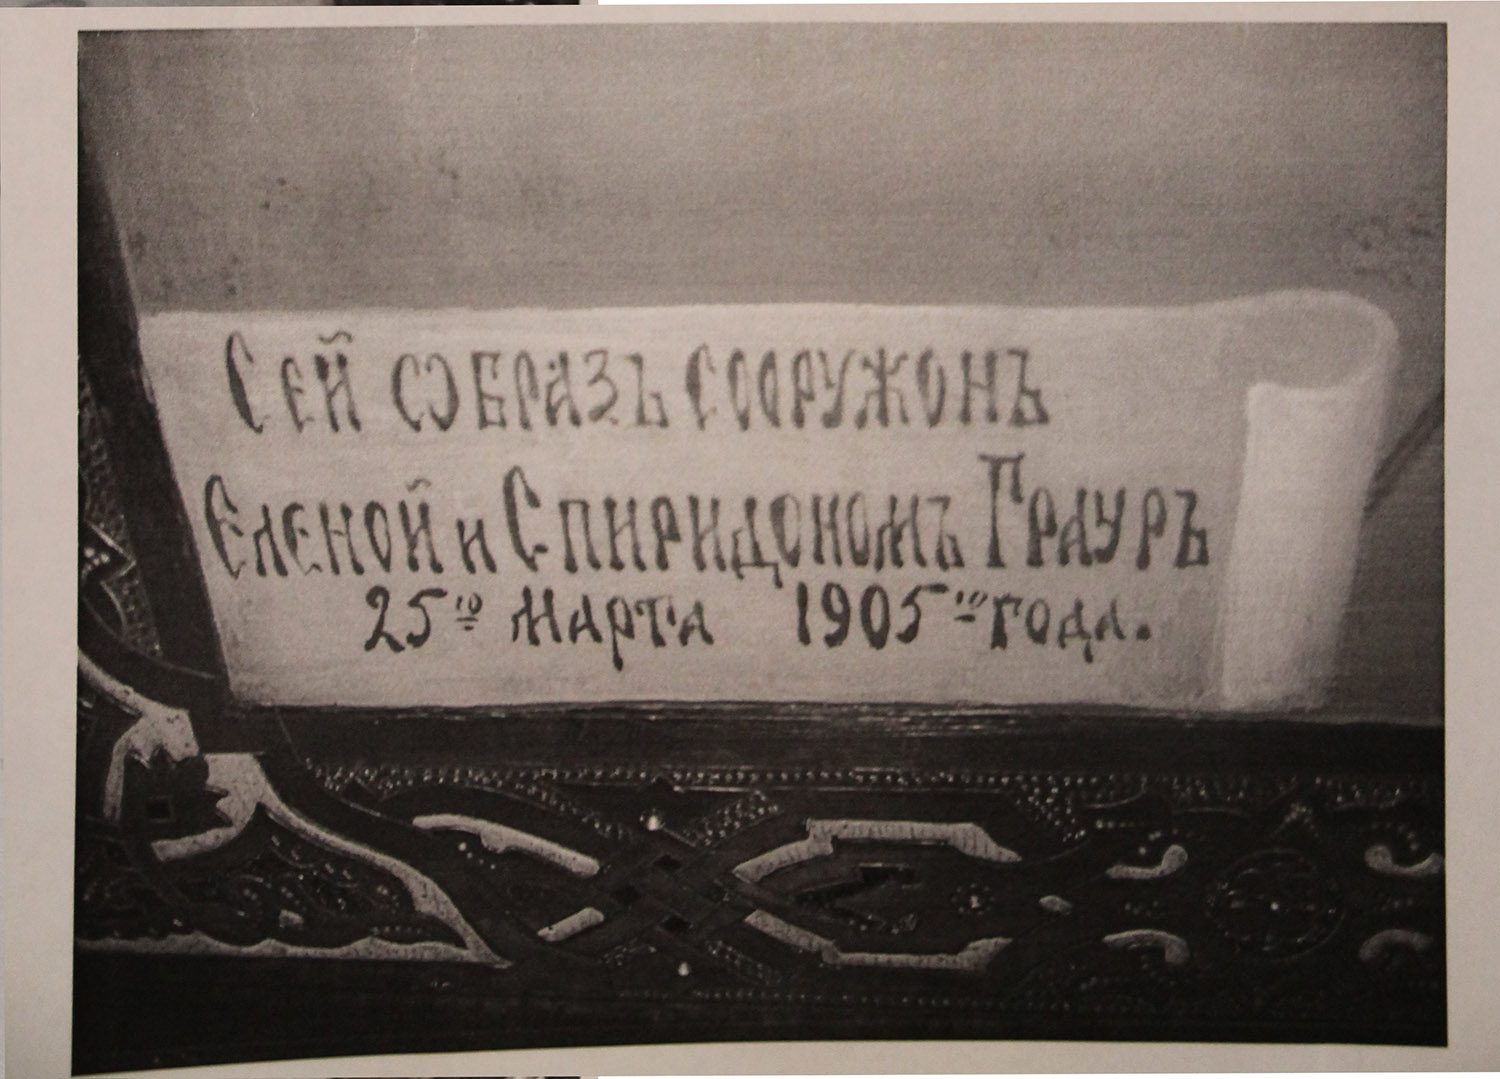 Сей собразъ сооружонъ
Еленой и Спиридономъ Грауръ
25го Марта 1905го года.